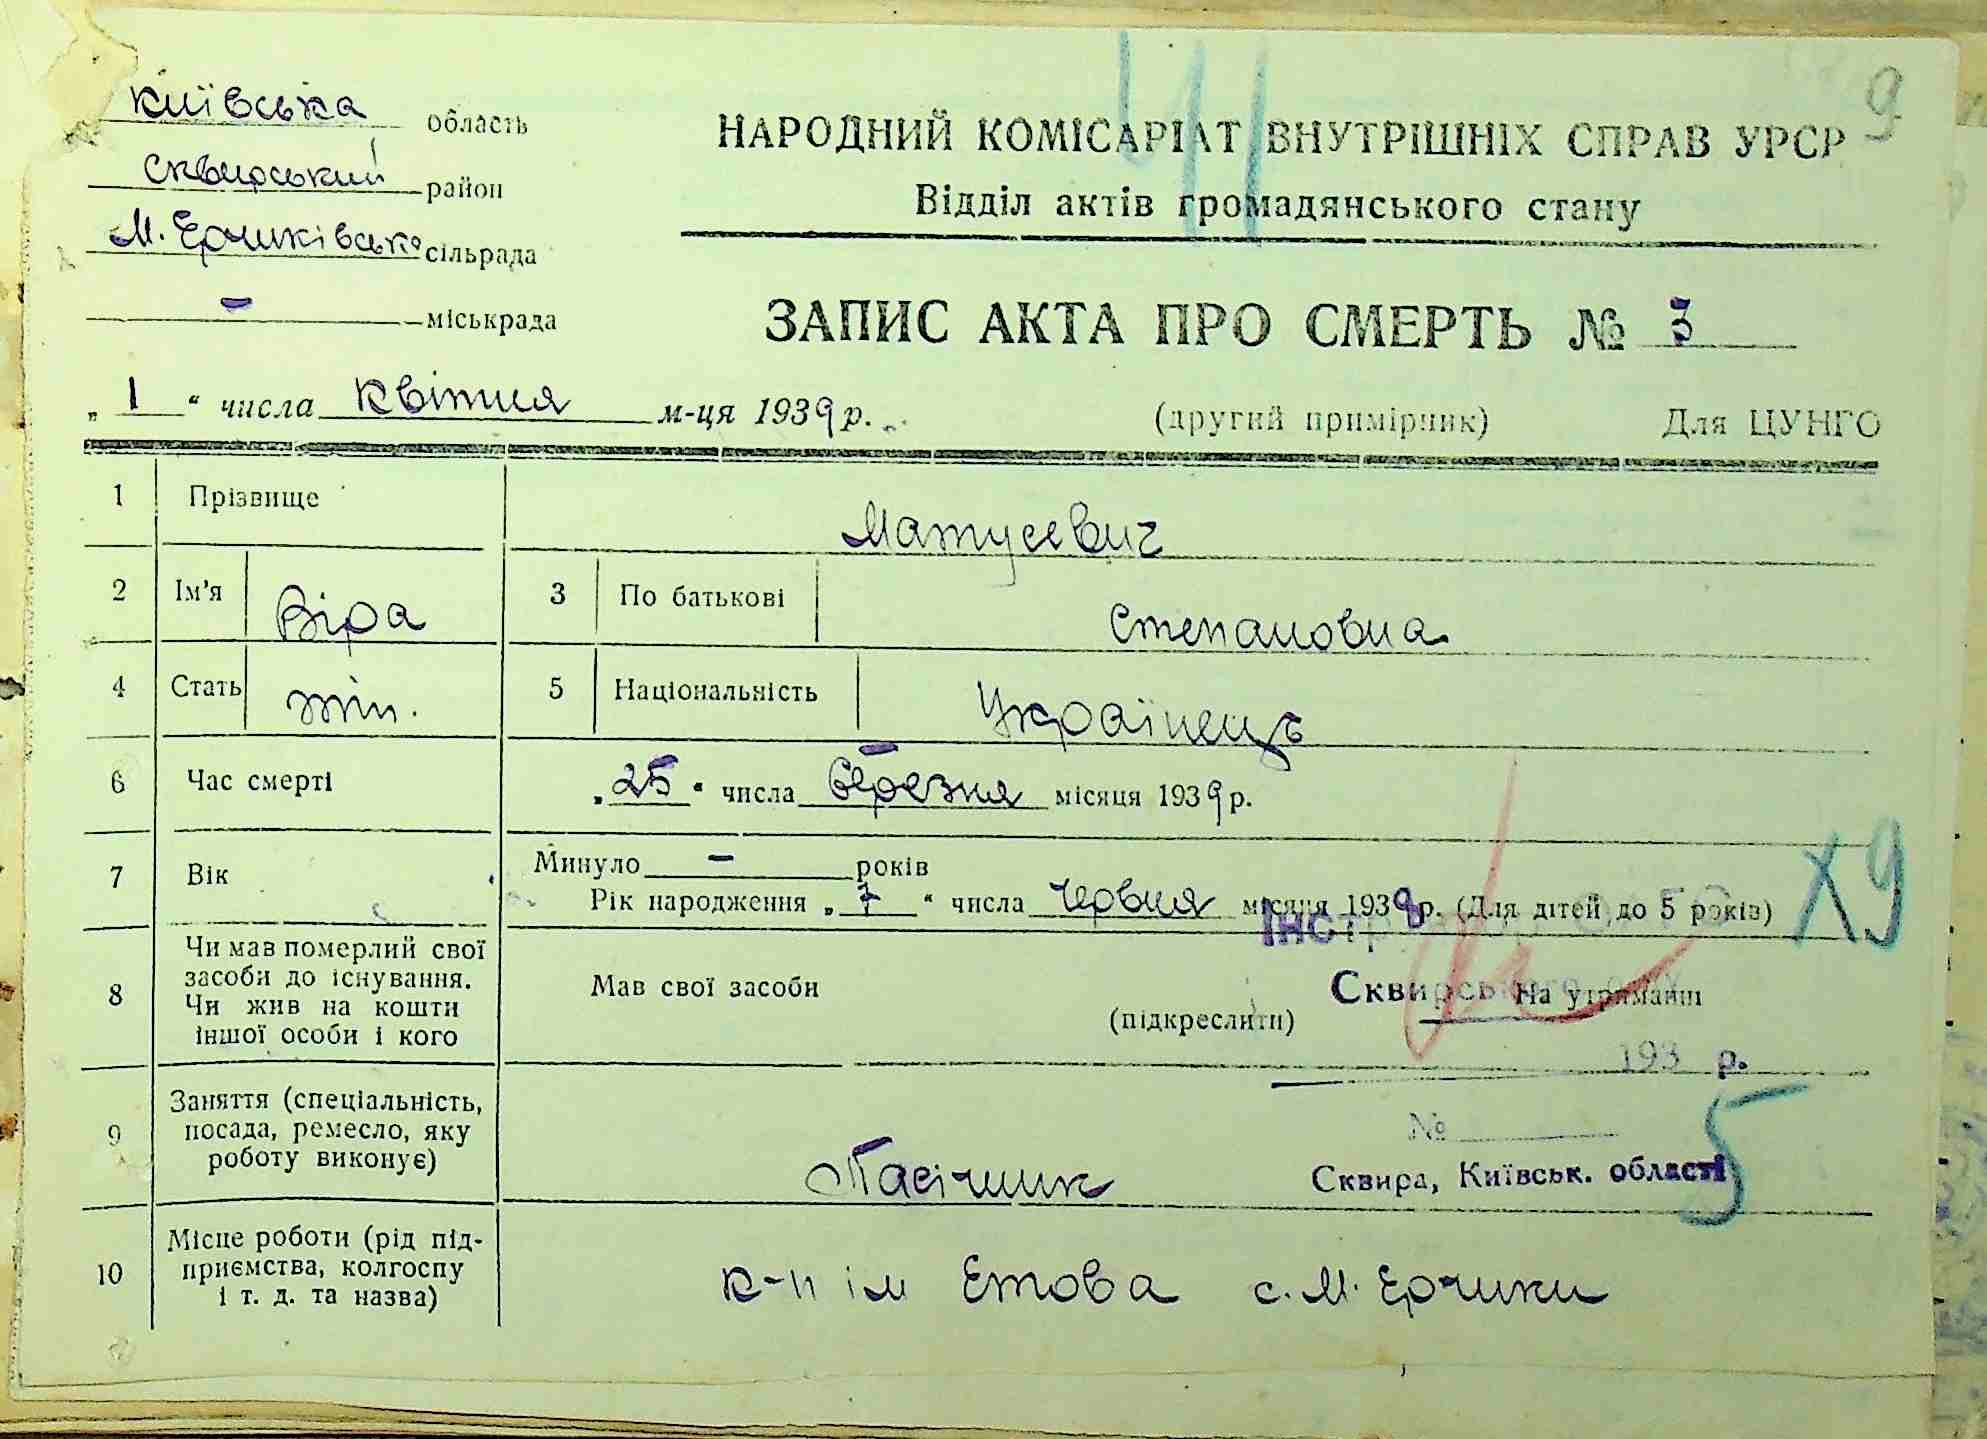 9
Київська область
НАРОДНИЙ КОМІСАРІАТ ВНУТРІШНІХ СПРАВ УРСР
Сквирський район
Відділ актів громадянського стану
М. Єрчиківська сільрада
- міськрада
ЗАПИС АКТА ПРО СМЕРТЬ № 3
„ 1 “ числа квітня м-ця 1939 р.
(другий примірник) Для ЦУНГО
1 Прізвище Матусевич
2 Ім'я Віра 3 По батькові Степановна
4 Стать жін. 5 Національність Українець
6 Час смерті „25“ числа березня місяця 1939 р.
7 Вік Минуло - років
Рік народження „7“ числа червня місяця 1938 р. (Для дітей до 5 років)
Х9
Інст
8 Чи мав померлий свої засоби до існування. Чи жив на кошти іншої особи і кого
Мав свої засоби (підкреслити) На утриманні
Сквирського
193 р.
№
5
9 Заняття (спеціальність, посада, ремесло, яку роботу виконує) Пасічник
Сквира, Київськ. області
10 Місце роботи (рід підприємства, колгоспу і т. д. та назва) к-п ім с. М. Єрчики